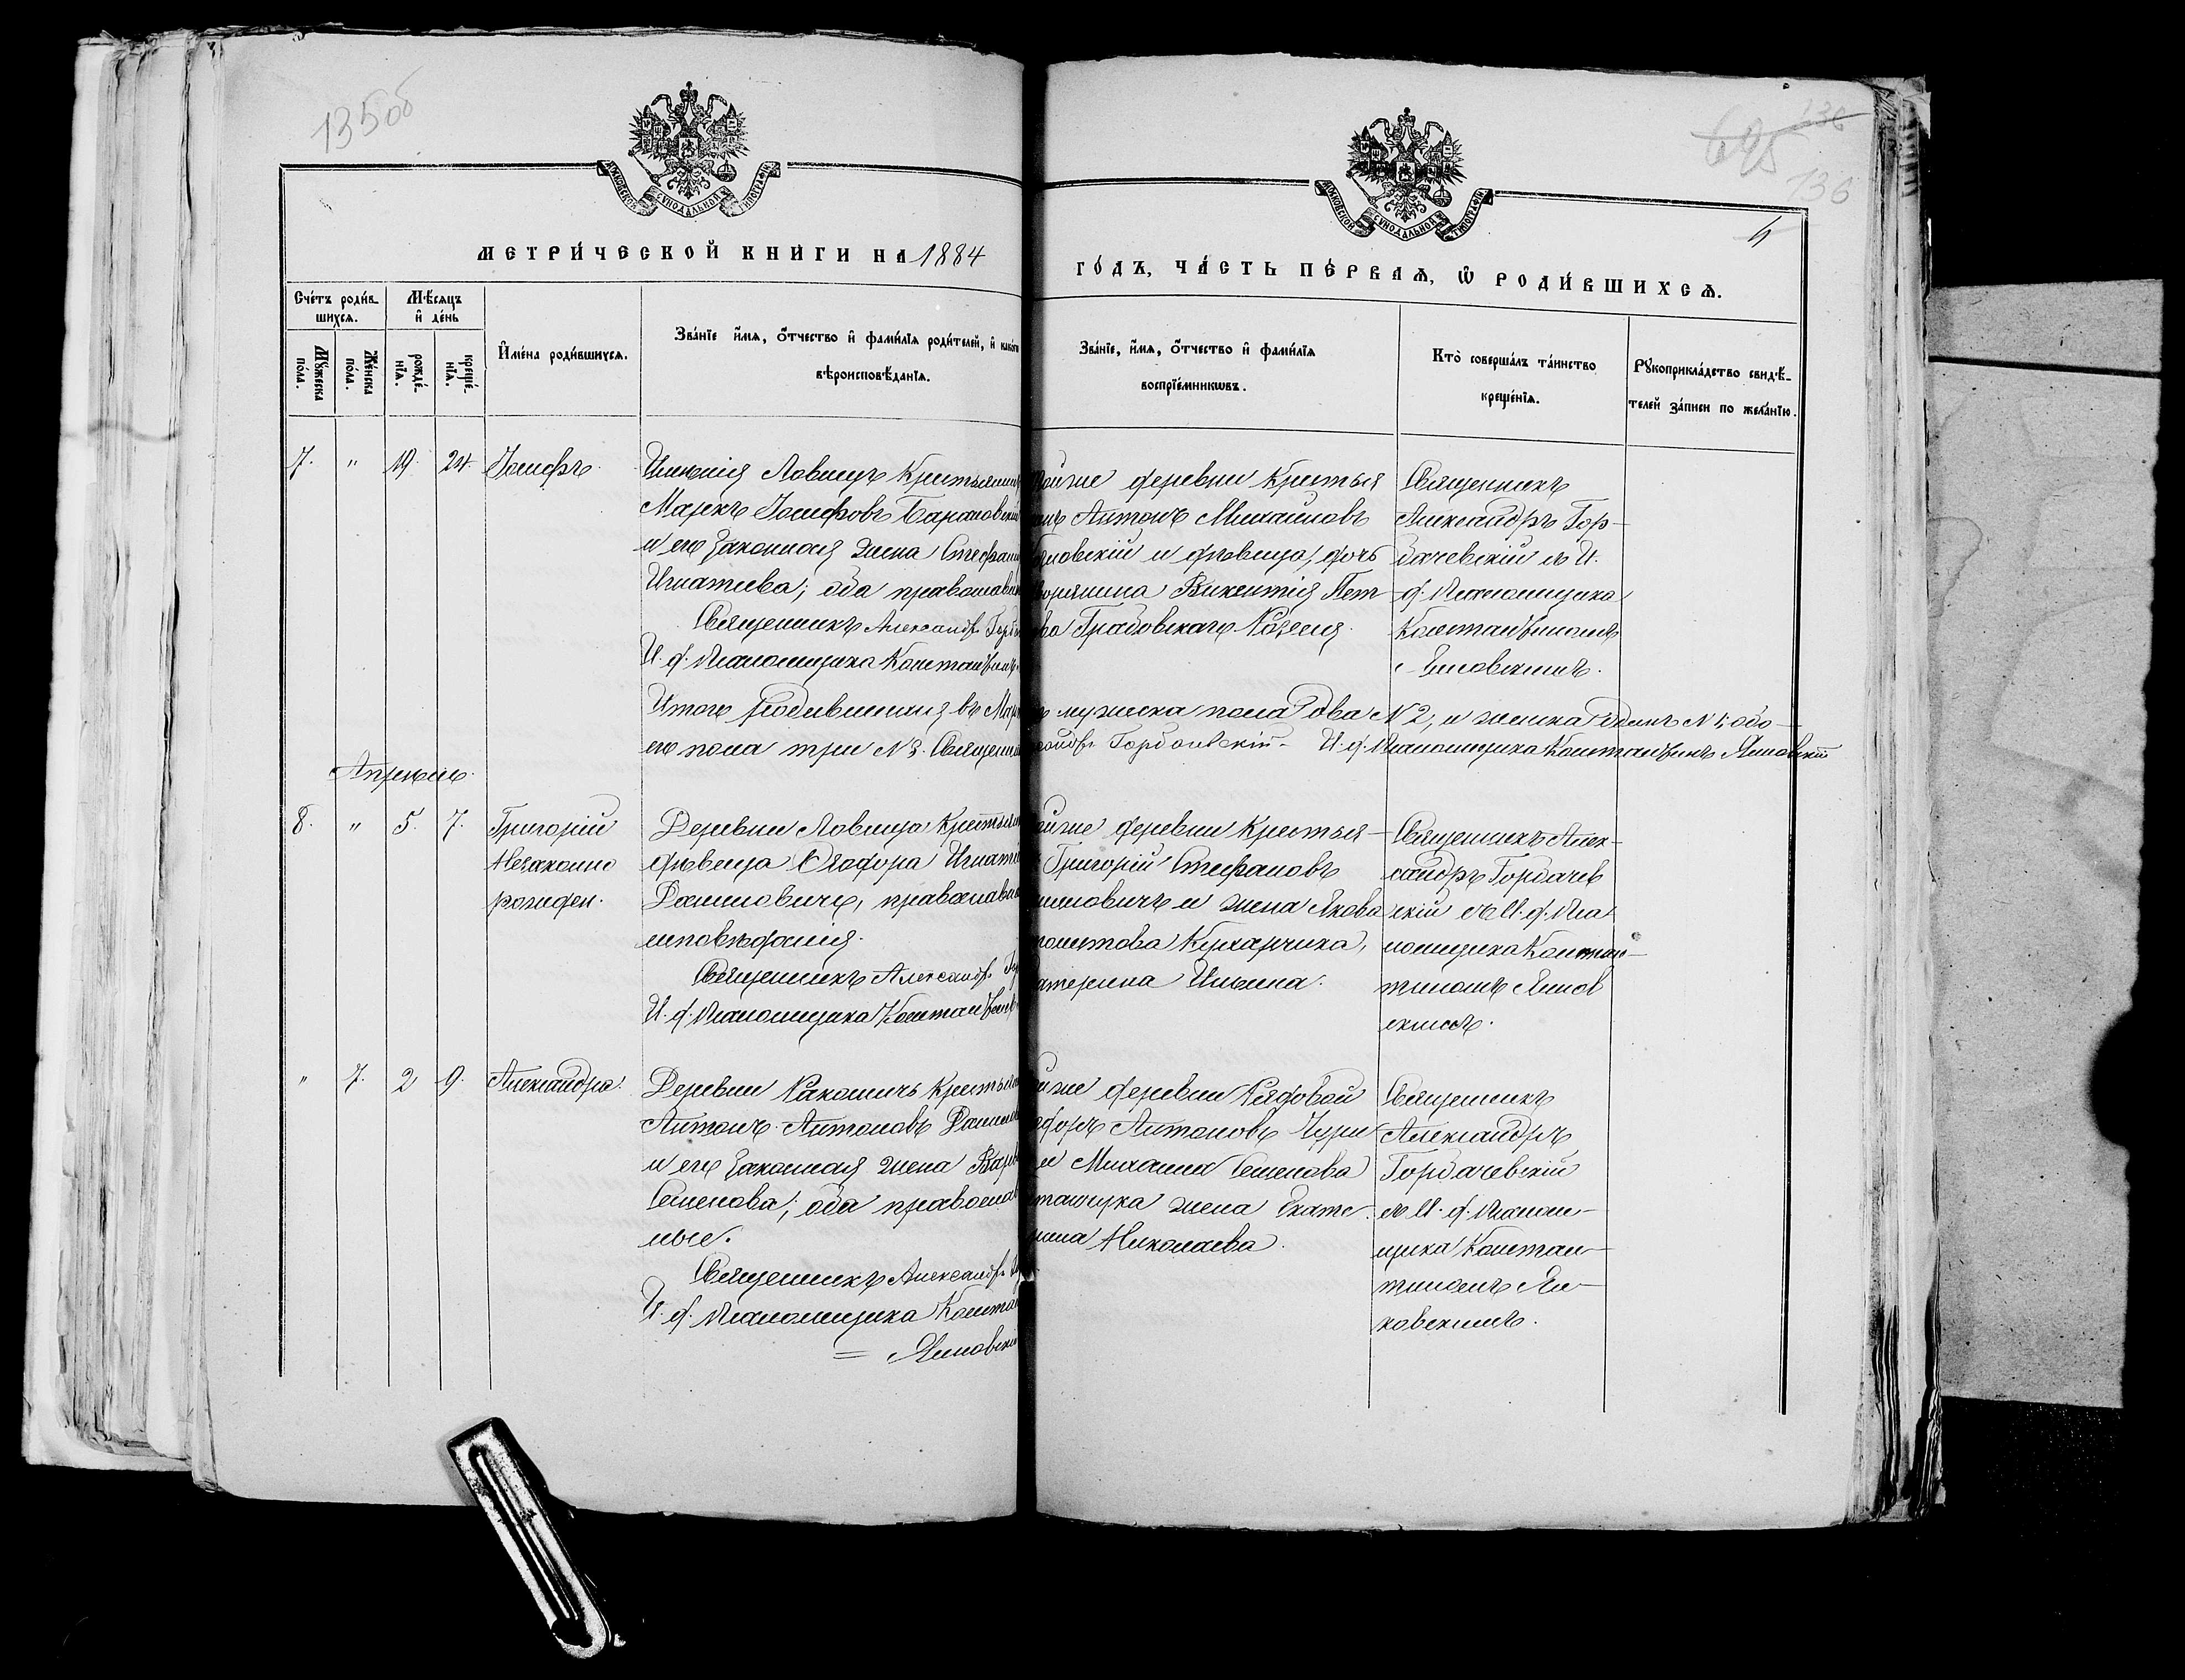 135об
136
695
136
4
МОСКОВСКОЙ СУНОДАЛЬНОЙ ТИПОГРАФІИ
МОСКОВСКОЙ СУНОДАЛЬНОЙ ТИПОГРАФІИ
МЕТРИ́ЧЕСКОЙ КНИ́ГИ НА 1884
ГО́ДЪ, ЧА́СТЬ ПЕ́РВАѦ, Ѡ РОДИ́ВШИХСѦ.
Сче́тъ роди́в-
шихсѧ.
Мꙋжеска
по́ла.
Же́нска
по́ла.
Мѣ́сѧцъ
и҆ де́нь
рожде́-
нїѧ.
креще́-
нїѧ.
И҆мена̀ роди́вшихсѧ.
Зва́нїе и҆́мѧ, ѻ҆́тчество и҆ фами́лїѧ роди́телей, и҆ како́гѡ
вѣроисповѣ́данїѧ.
Зва́нїе, и҆́мѧ, ѻ҆́тчество и҆ фами́лїѧ
воспрїе́мникѡвъ.
Кто̀ соверша́лъ та́инство
креще́нїѧ.
Рꙋкоприкла́дство свидѣ́-
телей за́писи по жела́нїю.
7. " 19. 24. Іосифъ.
Имѣнія Ловищъ Крестьянинъ
Маркъ Іосифовъ Барановскій
и его законная жена Стефані
Игнатіева; оба православн
Священникъ Александр. Горб
И. д. Псаломщика Константинъ
тойже деревни Крестья
нинъ Антонъ Михайловъ
новскій и дѣвица, дочь
дворянина Викентія Пет-
рова Грабовскаго Розалія.
Священникъ
Александръ Гор-
бачевскій съ И.
д. Псаломщика
Константиномъ
Яновскимъ.
Итого родившихся въ Мар мужеска пола два N 2, и женска одинъ N 1; обо-
его пола три N 3. Священ Горбачевскій. И. д. Псаломщика Константинъ Яновскій
Апрѣль.
8. " 5. 7. Григорій
Незаконно
рожден.
Деревни Ловища Крестьян
дѣвица Ѳеодора Игнаті
Данилович, православн
исповѣданія.
Священникъ Александр. Г
И. д. Псаломщика Констан
тойже деревни Крестья-
Григорій Стефановъ
ниловичъ и жена Якова
Кухарчика,
катерина Ильина.
Священникъ Алек-
сандръ Горбачев
скій съ И. д. Пса
ломщика Констан-
тиномъ Янов
скимъ.
" 7. 2 9. Александра.
Деревни Ракошичъ Крестьян
Антонъ Антоновъ Данил
и его законная жена Варв
Семенова; оба православ
ные.
Священникъ Александр. Г
И. д. Псаломщика Конста
= Яновскій
тойже деревни Рядовой
Антоновъ
и Михаила Семенова
жена Екате-
рина Николаева.
Священникъ
Александръ
Горбачевскій
съ И. д. Псалом-
щика Констан-
тиномъ Ян-
ковскимъ.